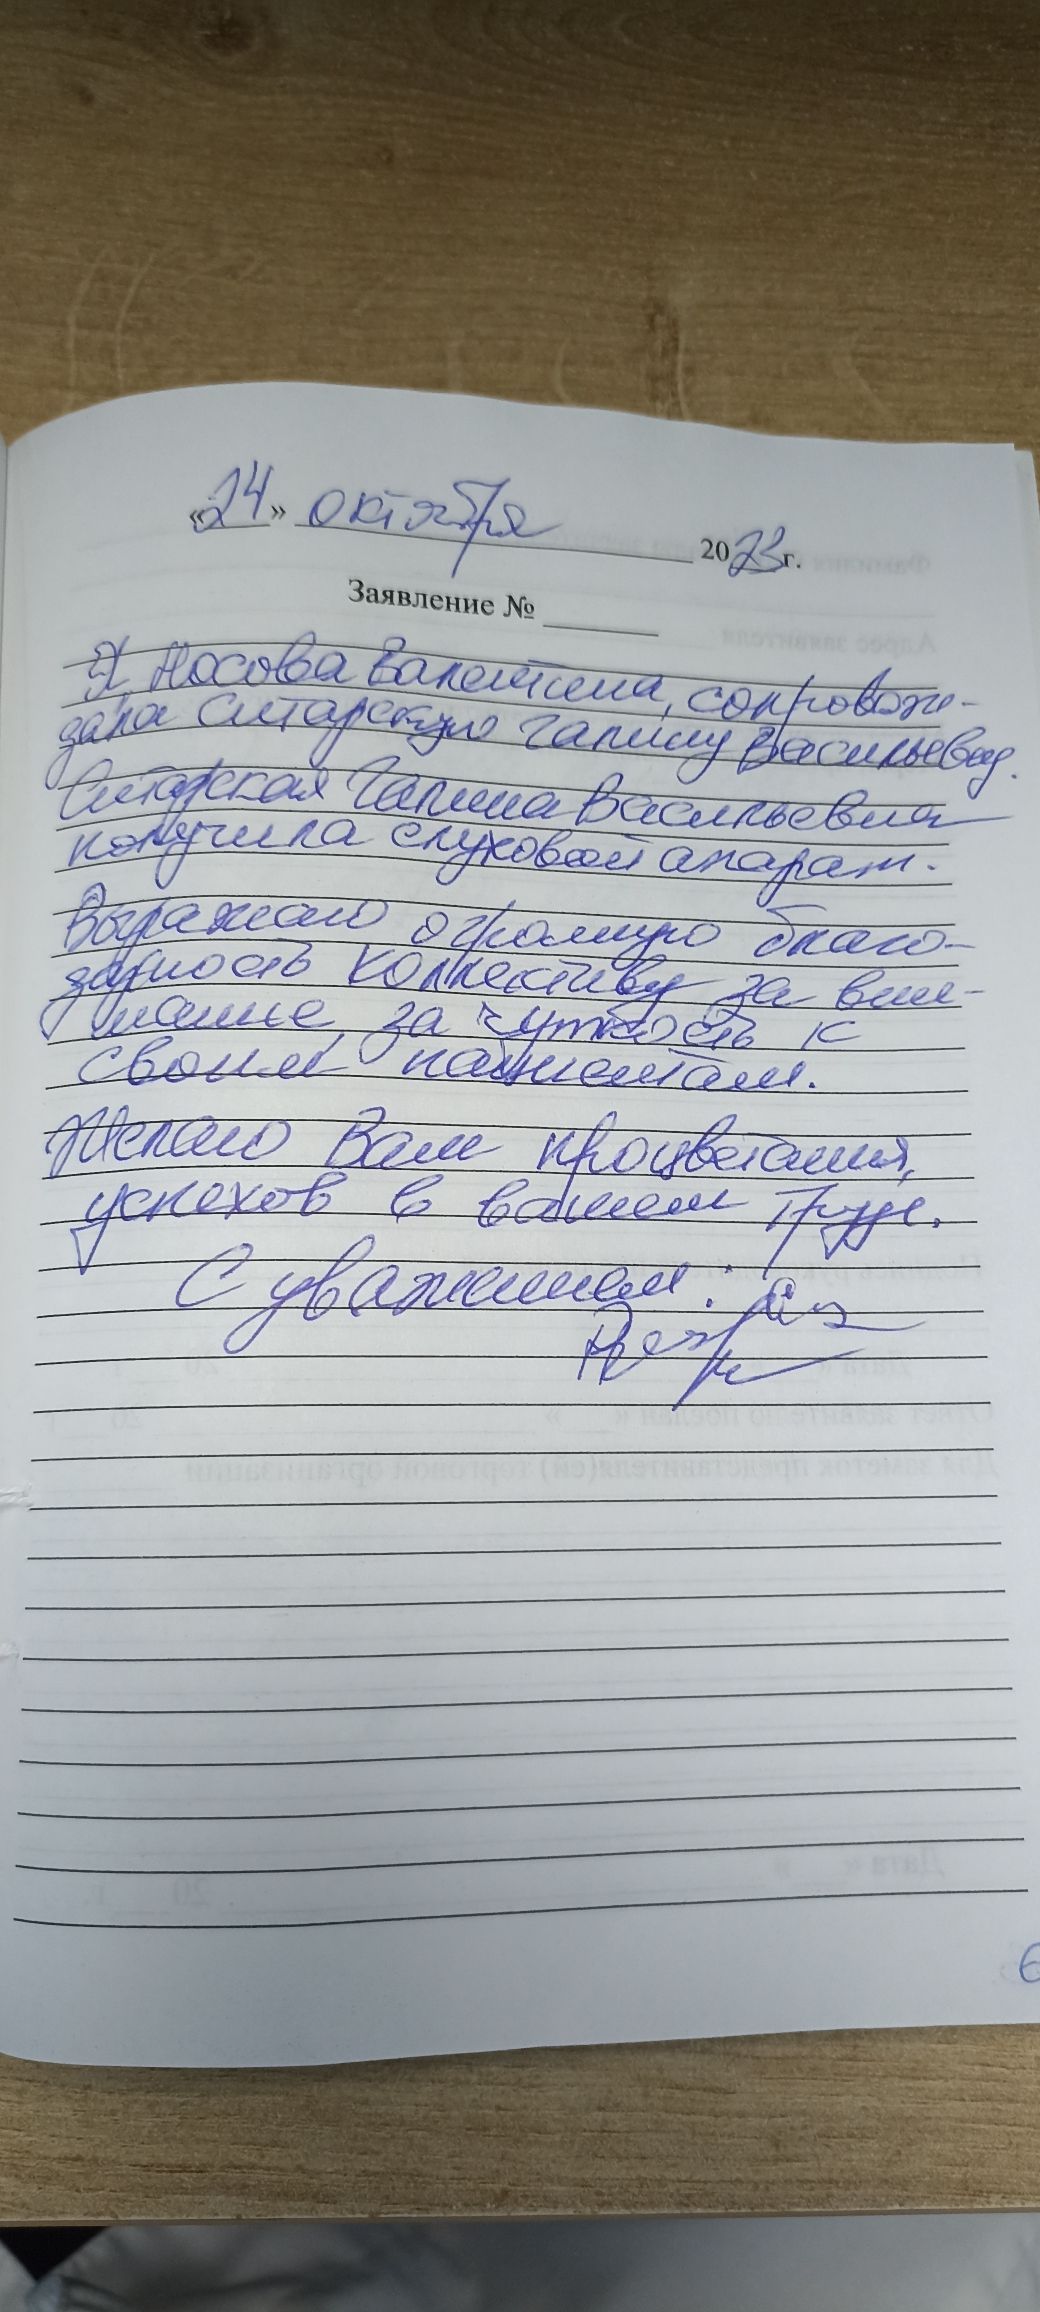 «24» октября 2023 г.
Заявление №
Я, Носова Валентина, сопровож-
дала Ситарскую Галину Васильевну.
Ситарская Галина Васильевна
получила слуховой апарат.
Выражаю огромную благо-
дарность коллективу за вни-
мание, за чуткость к
своим пациентам.
Желаю Вам процветания,
успехов в вашем труде.
С уважением:
6